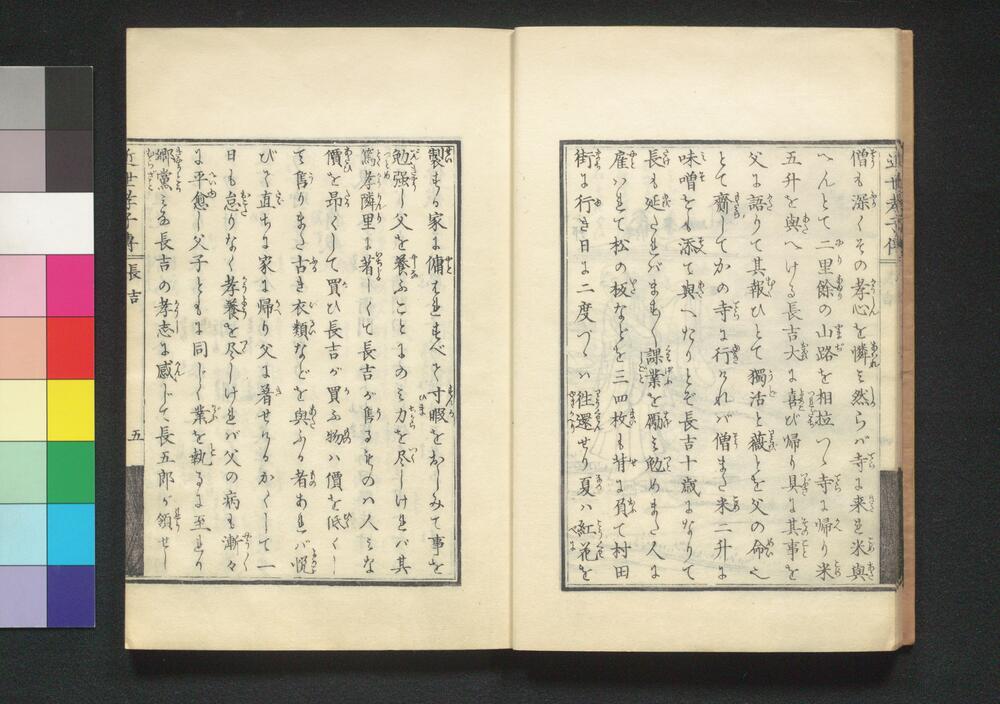 僧も深くその孝心を憐ミ然らバ寺に来れ米與
へんとて二里餘の山路を相拉つゝ寺に帰り米
五升を與へける長吉大に喜び帰り具に其事を
父に語りて其報ひとて獨活と薇とを父の命
とて齎してかの寺に行けれバ僧また米二升に
味噌をも添て與へたりとぞ長吉十歳になりて
長も延たれバます〳〵課業を勵ミ勉めまた人に
雇ハれて松の板などを三四枚も背に負て村田
街に行き日に二度づゝハ往還せり夏ハ紅花を
製する家に傭はれすべて寸暇をおしみて事を
勉强し父を養ふことにのミ力を尽しけれバ其
篤孝隣里に著しくて長吉が售るものハ人ミな
價を昂くして買ひ長吉が買ふ物ハ價を低くし
て售りまた古き衣類などを與ふる者あれバ悦
びて直ちに家に帰り父に着せけるかくして一
日も怠りなく孝養を尽しけれバ父の病も漸々
に平愈し父子ともに同じく業を執るに至れり
郷黨ミな長吉の孝志に感じて長五郎が領せし
近世孝子傳 長吉 五